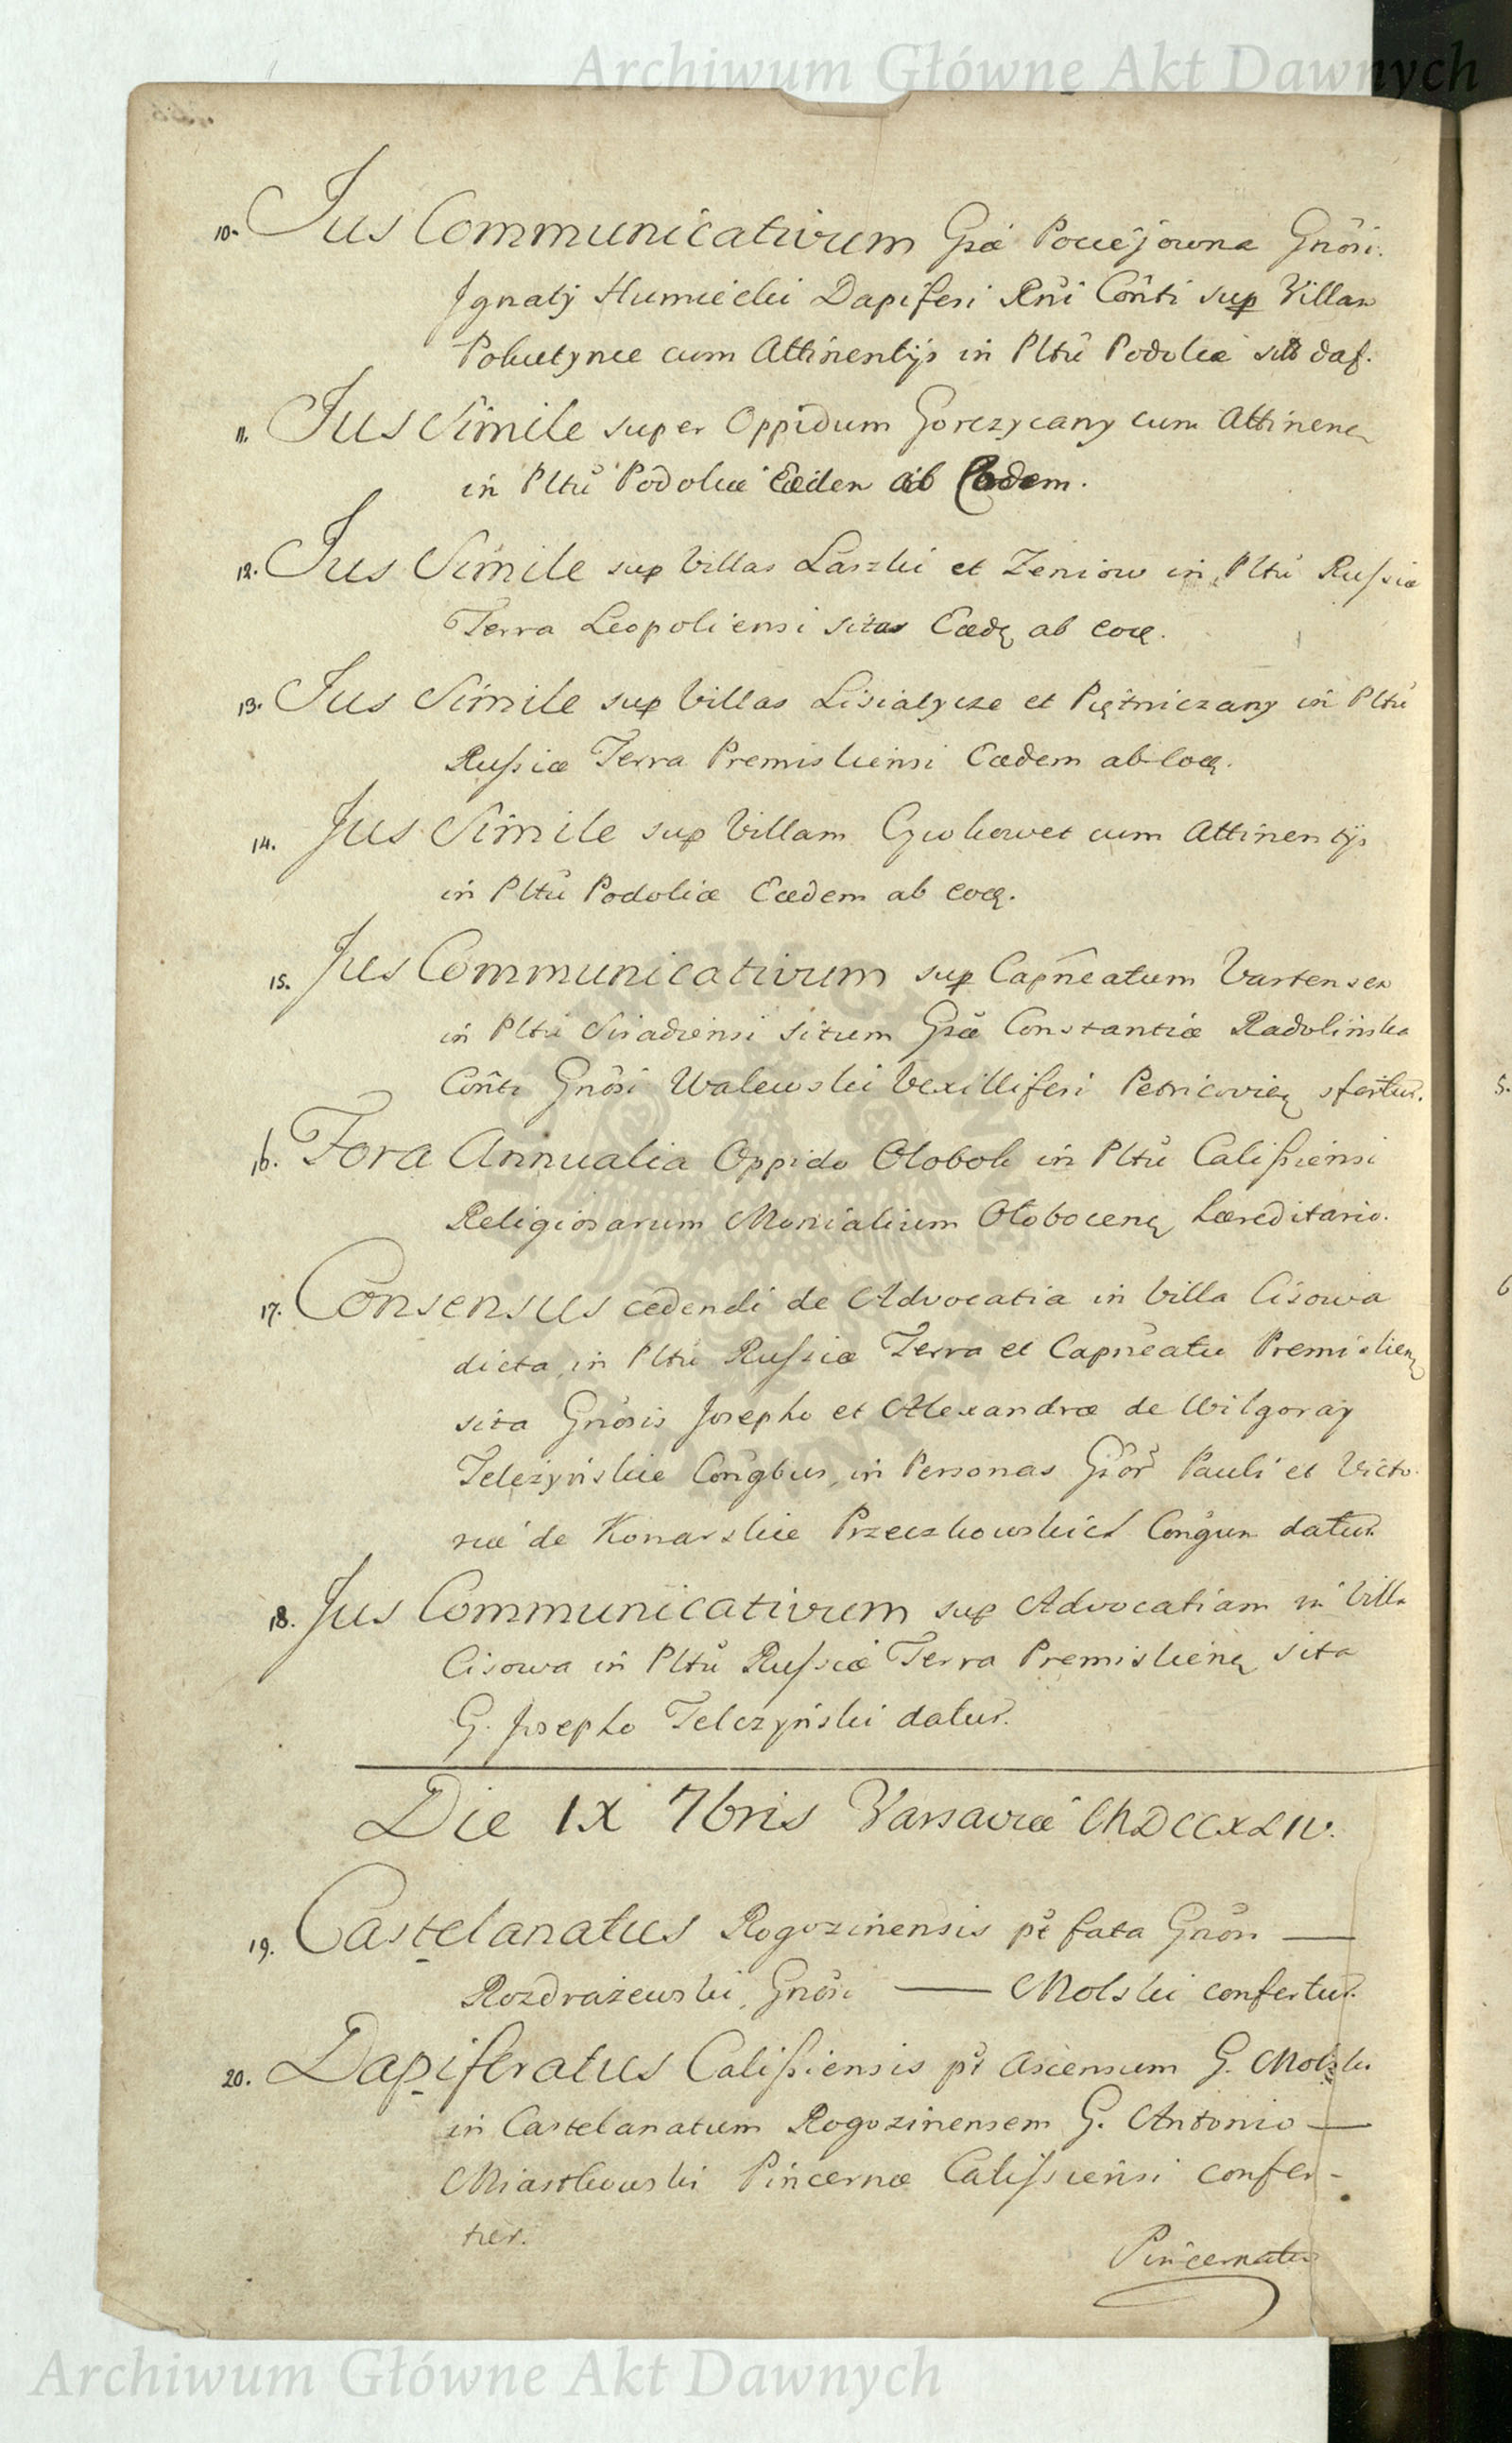 Archiwum Główne Akt Dawnych
10. Jus Communicativum Gsæ Pociejowna Gnôsi.
Ignatÿ Humiecki Dapiferi Rni Conti sup Villam
Pokutynce cum Attinentÿs in Pltũ Podoliæ sitt daf.
11. Jus Simile super Oppidum Gorczyczany cum Attinen
in Pltũ Podoliæ Eædem ab Eodem.
12. Jus Simile sup Villas Laszki et Zeniow in Pltũ Russiæ
Terra Leopoliensi sitas Eæd ab eoq.
13. Jus Simile sup Villas Lisiatycze et Piętniczany in Pltũ
Russiæ Terra Premisliensi Eædem ab eoq.
14. Jus Simile sup Villam Cywkowce cum Attinentÿs
in Pltũ Podoliæ Eædem ab eoq.
15. Jus Communicativum sup Capneatum Vartensem
in Pltũ Siradiensi situm Gsæ Constantiæ Radolinska
Conti Gnôsi Walewski Vexilliferi Petricovien sfertur.
16. Fora Annualia Oppido Olobok in Pltũ Calissiensi
Religiosarum Monialium Olobocen hæreditario.
17. Consensus cedendi de Advocatia in Villa Cisowa
dicta in Pltũ Russiæ Terra et Capneatu Premislien
sita Gnosis Josepho et Alexandræ de Wilgoray
Teleżyńskie Congbus, in Personas Gsor Pauli et Victo-
riæ de Konarskie Przeczkowskich Congum datur.
18. Jus Communicativum sup Advocatiam in Villa
Cisowa in Pltũ Russiæ Terra Premislien sita
G. Josepho Telezyński datur.
Die IX 7bris Varsaviæ MDCCXLIV.
19. Castelanatus Rogozinensis pt fata Gnôsi —
Rozdrażewski, Gnôsi — Molski confertur.
20. Dapiferatus Calissiensis pt Ascensum G. Molski
in Castelanatum Rogozinensem G. Antonio —
Miastkowski Pincernæ Calissiensi confer-
tur.
Pincernatus
Archiwum Główne Akt Dawnych